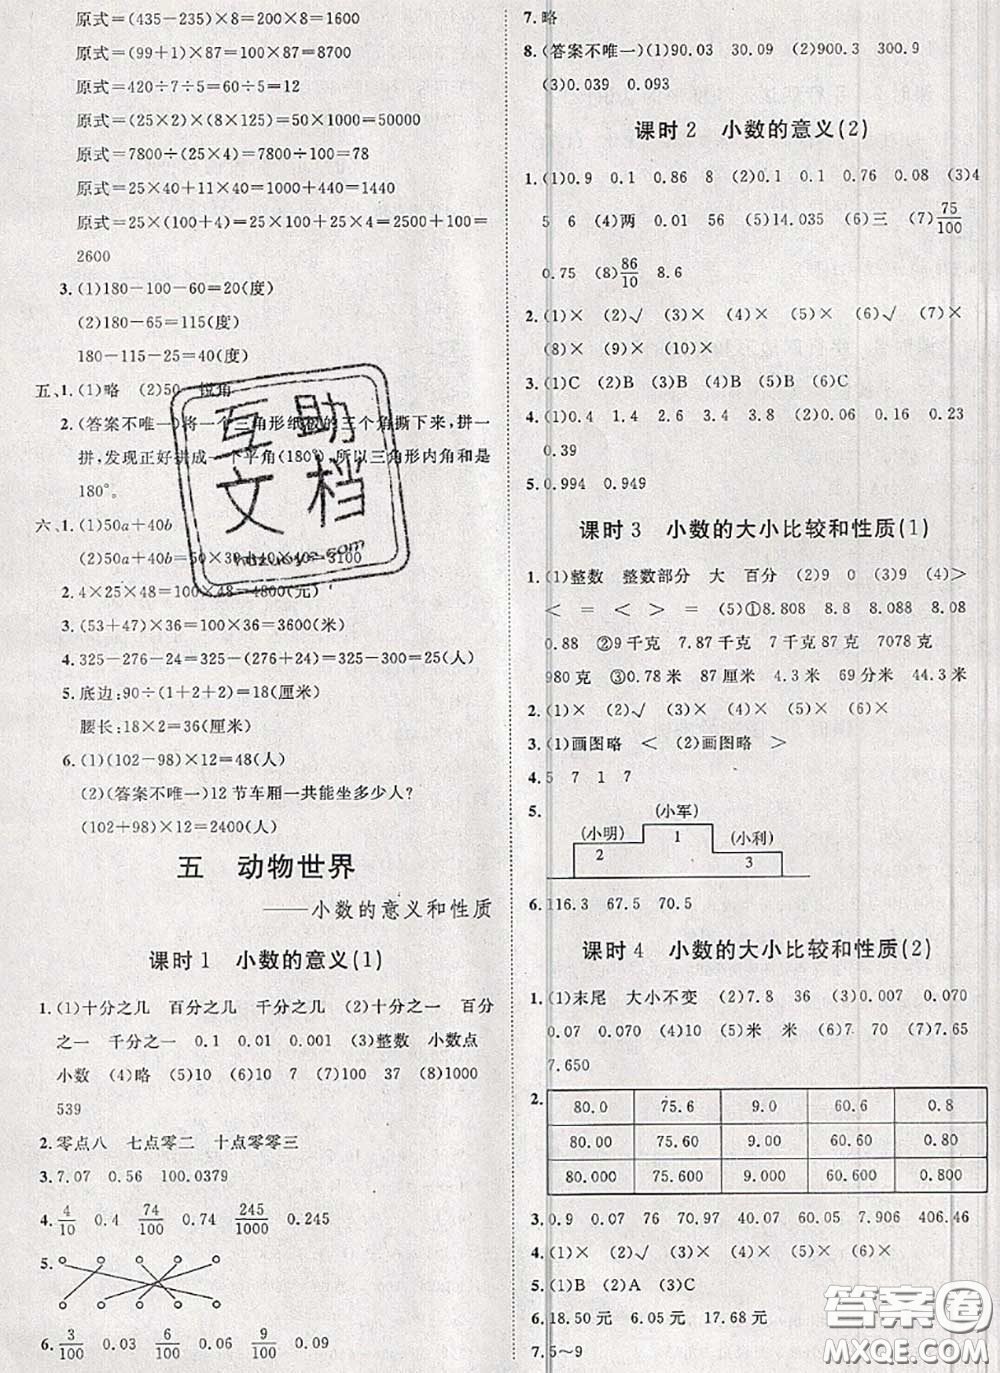 原式=(435-235)×8=200×8=1600
原式=(99+1)×87=100×87=8700
原式=420÷7÷5=60÷5=12
原式=(25×2)×(8×125)=50×1000=50000
原式=7800÷(25×4)=7800÷100=78
原式=25×40+11×40=1000+440=1440
原式=25×(100+4)=25×100+25×4=2500+100=
2600
3.(1)180-100-60=20(度)
(2)180-65=115(度)
180-115-25=40(度)
五、1.(1)略 (2)50 锐角
2.(答案不唯一)将一个三角形纸板的三个角撕下来,拼一
拼,发现正好拼成一个平角(180°),所以三角形内角和是
180°。
六、1.(1)50a+40b
(2)50a+40b=50×30+40×40=3100
2.4×25×48=100×48=4800(元)
3.(53+47)×36=100×36=3600(米)
4.325-276-24=325-(276+24)=325-300=25(人)
5.底边:90÷(1+2+2)=18(厘米)
腰长:18×2=36(厘米)
6.(1)(102-98)×12=48(人)
(2)(答案不唯一)12节车厢一共能坐多少人?
(102+98)×12=2400(人)
五 动物世界
——小数的意义和性质
课时1 小数的意义(1)
1.(1)十分之几 百分之几 千分之几 (2)十分之一 百分
之一 千分之一 0.1 0.01 0.001 (3)整数 小数点
小数 (4)略 (5)10 (6)10 7 (7)100 37 (8)1000
539
2.零点八 七点零二 十点零零三
3.7.07 0.56 100.0379
4. 4/10 0.4 74/100 0.74 245/1000 0.245
5.
6. 3/100 0.03 6/100 0.06 9/100 0.09
7.略
8.(答案不唯一)(1)90.03 30.09 (2)900.3 300.9
(3)0.039 0.093
课时2 小数的意义(2)
1.(1)0.9 0.1 0.86 8 (2)0.1 0.1 0.76 0.08 (3)4
5 6 (4)两 0.01 56 (5)14.035 (6)三 (7) 75/100
0.75 (8) 86/10 8.6
2.(1)× (2)√ (3)× (4)× (5)× (6)√ (7)×
(8)× (9)× (10)×
3.(1)C (2)B (3)B (4)C (5)B (6)B
4.(1)0.4 1.4 2.6 3.4 3.8 (2)0.06 0.15 0.23
0.39
5.0.994 0.949
课时3 小数的大小比较和性质(1)
1.(1)整数 整数部分 大 百分 (2)9 0 (3)9 (4)>
< = < > = (5)①8.808 8.8 8.088 8.08
0.88 ②9千克 7.87千克 7千克87克 7078克
980克 ③0.78米 87厘米 4.3米 69分米 44.3米
2.(1)× (2)√ (3)× (4)× (5)× (6)×
3.(1)画图略 < (2)画图略 >
4.5 7 1 7
5.
(小军)
(小明) 1 (小利)
2 3
6.116.3 67.5 70.5
课时4 小数的大小比较和性质(2)
1.(1)末尾 大小不变 (2)7.8 36 (3)0.007 0.070
0.07 0.070 (4)10 (5)米 米 (6)7 70 (7)7.65
7.650
2. 80.0 75.6 9.0 60.6 0.8
80.00 75.60 9.00 60.60 0.80
80.000 75.600 9.000 60.600 0.800
3.0.9 0.07 76 70.97 40.07 60.05 7.906 406.46
4.(1)× (2)√ (3)× (4)× (5)× (6)×
5.(1)B (2)A (3)C
6.18.50元 6.05元 17.68元
7.5~9
互助
文档
答案圈
MXQE.COM